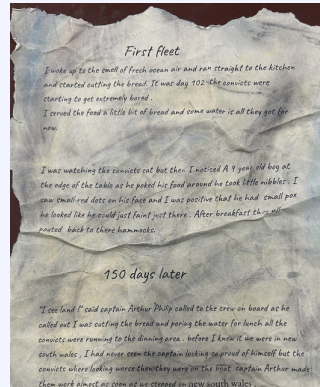 First fleet
I woke up to the smell of fresh ocean air and ran straight to the kitchen
and started cutting the bread. It was day 102 the convicts were
starting to get extremely bored .
I served the food a little bit of bread and some water is all they got for
now.
I was watching the convicts eat but then I noticed A 9 year old boy at
the edge of the table as he poked his food around he took little nibbles . I
saw small red dots on his face and I was positive that he had small pox
he looked like he could just faint just there . After breakfast they all
pouted back to there hammocks.
150 days later
"I see land !" said captain Arthur Philip called to the crew on board as he
called out I was cutting the bread and poring the water for lunch all the
convicts were running to the dinning area . before I knew it we were in new
south wales , I had never seen the captain looking so proud of himself but the
convicts where looking worse then they were on the boat. captain Arthur made
them work almost as soon as we stepped on new south wales